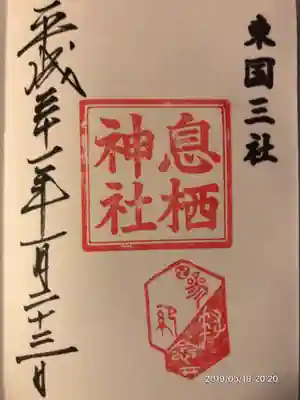 東国三社
息栖
神社
平成三十一年一月二十三日
2019/05/18 20:20